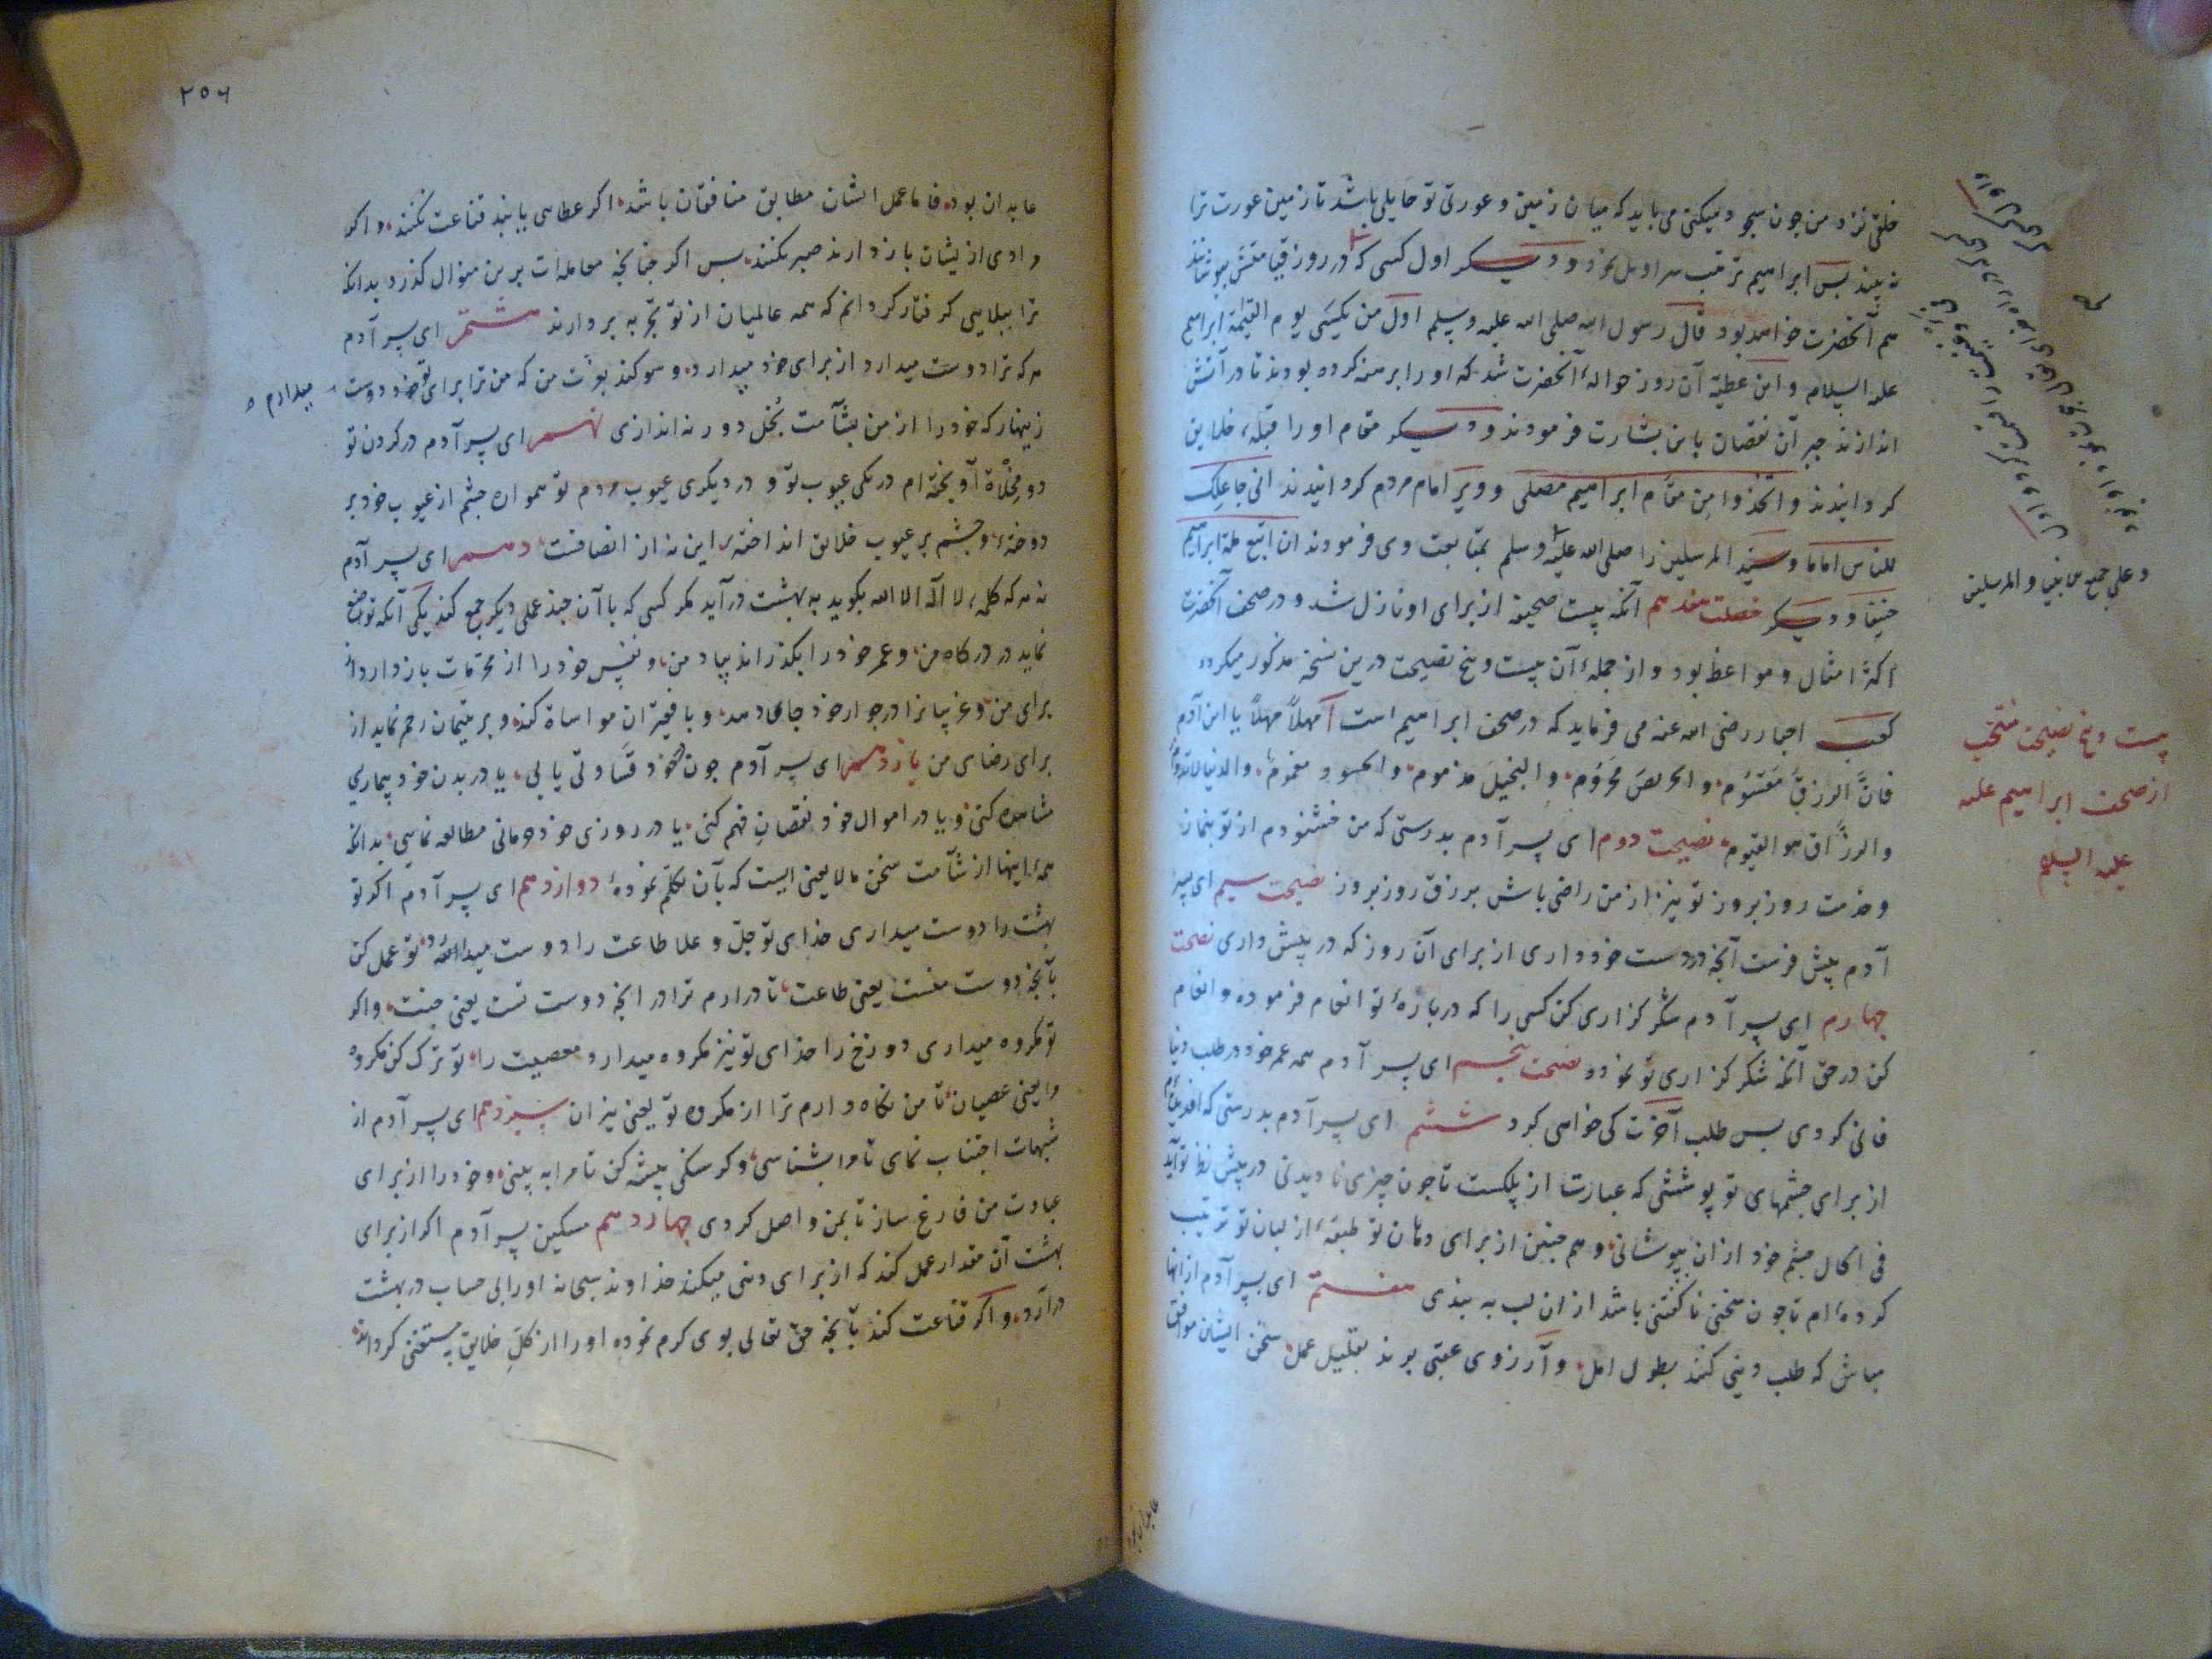 خلقی نزد من چون سجود میکنی می باید که میان زمین و عورتی تو حایلی باشد تا زمین عورت ترا
نه بیند پس ابراهیم ترتیب سراویل نمود و دیگر اول کسی که در روز قیامتش بپوشانند
هم آنحضرت خواهد بود قال رسول الله صلی الله علیه وسلم اول من یکسی یوم القیمة ابراهیم
علیه السلام و این عطیه آن روز حواله آنحضرت شد که او را برهنه کرده بودند تا در آتش
اندازند جبر آن نقصان باین بشارت فرمودند و دیگر مقام او را قبله خلایق
کردانیدند واتخذوا من مقام ابراهیم مصلی و ویرا امام مردم کردانیدند انی جاعلک
للناس اماما و سید المرسلین را صلی الله علیه وسلم بمتابعت وی فرمودند ان اتبع ملة ابراهیم
حنیفا و دیگر خصلت هفدهم آنکه بیست صحیفه از برای او نازل شد و در صحف آنحضرت
اکثر امثال و مواعظ بود و از جمله آن بیست و پنج نصیحت درین نسخه مذکور میکردد
کعب احبار رضی الله عنه می فرماید که در صحف ابراهیم است مهلاً مهلاً یا ابن آدم
فانّ الرزق مقسوم و الحریص محروم و البخیل مذموم والحسود مغموم والدنیا لا تدوم
والرزّاق هو القیوم نصیحت دوم ای پسر آدم بدرستی که من خشنودم از تو بنماز
و خدمت روز بروز تو نیز از من راضی باش برزق روز بروز نصیحت سیم ای پسر
آدم پیش فرست آنچه در دست خود داری از برای آن روز که در پیش داری نصیحت
چهارم ای پسر آدم شکر کزاری کن کسی را که درباره تو انعام فرموده و انعام
کن در حق آنکه شکر کزاری تو نموده نصیحت پنجم ای پسر آدم همه عمر خود در طلب دنیا
فانی کردی پس طلب آخرت کی خواهی کرد ششم ای پسر آدم بدرستی که آفریده‌ام
از برای چشمهای تو پوششی که عبارت از پلکست تا چون چیزی نادیدنی در پیش نظر تو آید
فی الحال چشم خود از ان بپوشانی و هم چنین از برای دهان تو طبقه از لبان تو ترتیب
کرده‌ام تا چون سخنی ناکفتنی باشد از ان لب به بندی هفتم ای پسر آدم از انها
مباش که طلب دینی کنند بطول امل و آرزوی عقبی برند بتقلیل عمل سخن ایشان موافق
وعلی جمیع النبیین والمرسلین
بیست و پنج نصیحت منتخب
از صحف ابراهیم علیه
علیه السلام
عابدان بود
٢٥٦
عابدان بود فاما عمل ایشان مطابق منافقان باشد اکر عطاهی یابند قناعت نکنند و اکر
وادی از یشان باز دارند صبر نکنند پس اکر چنانچه معاملهات برین منوال کذرد بدانکه
ترا ببلایی کرفتار کردانم که همه عالمیان از تو تجربه بردارند هشتم ای پسر آدم
هر که ترا دوست میدارد از برای خود میدارد و سوکند بعزت من که من ترا برای تو دوست میدارم
زینهار که خود را از من بشآمت بخل دور نه اندازی نهم ای پسر آدم در کردن تو
دو مخلاة آویخته ام در یکی عیوب تو و در دیکری عیوب مردم تو همواره چشم از عیوب خود بر
دوخته و چشم بر عیوب خلایق انداخته این نه از انصافست دهم ای پسر آدم
نه هر که کلمه لا اله الا الله بکوید به بهشت درآید مکر کسی که با آن چند عملی دیکر جمع کند یکی آنکه تواضع
نماید در درکاه من و عمر خود را بکذراند بیاد من و نفس خود را از محرمات باز دارد از
برای من و غریبانرا در جوار خود جای دهد و با فقیران مواساة کند و بر یتیمان رحم نماید از
برای رضای من یازدهم ای پسر آدم چون خود قساوتی یابی یا در بدن خود بیماری
مشاهده کنی و یا در اموال خود نقصان فهم کنی یا در روزی خود حرمانی مطالعه نمایی بدانکه
همه اینها از شآمت سخن مالایعنی ایست که بآن تکلم نموده دوازدهم ای پسر آدم اکر تو
بهشت را دوست میداری خدای تو جل و علا طاعت را دوست میدارد تو عمل کن
بآنچه دوست منست یعنی طاعت تا درارم ترا در انچه دوست تست یعنی جنت و اکر
تو مکروه میداری دوزخ را خدای تو نیز مکروه میدارد معصیت را تو ترک کن مکروه
مرا یعنی عصیان تا من نکاه دارم ترا از مکروه تو یعنی نیران سیزدهم ای پسر آدم از
شبهات اجتناب نمای تا مرا بشناسی و کرسنکی پیشه کن تا مرا به بینی و خود را از برای
عبادت من فارغ ساز تا بمن واصل کردی چهاردهم مسکین پسر آدم اکر از برای
بهشت آن مقدار عمل کند که از برای دنیی میکند خداوند سبحانه او را بی حساب در بهشت
درآرد و اکر قناعت کند بآنچه حق تعالی بوی کرم نموده او را از کل خلایق مستغنی کرداند